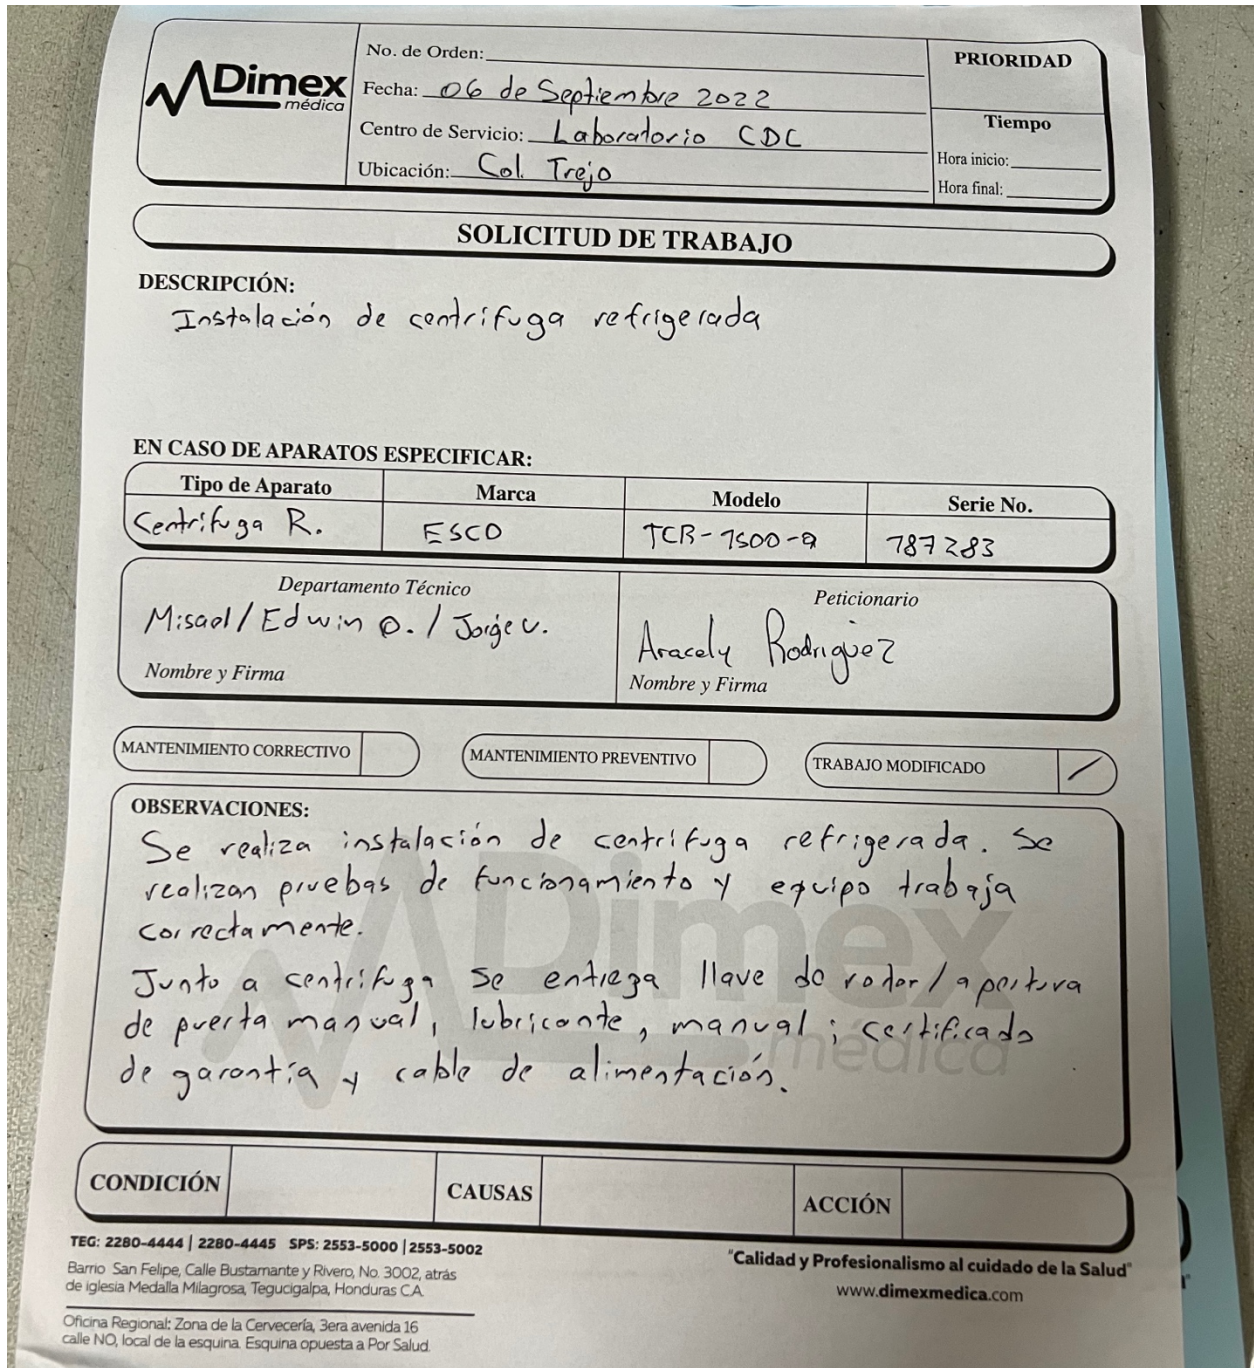 Dimex
médica
No. de Orden:
Fecha: 06 de Septiembre 2022
Centro de Servicio: Laboratorio CDC
Ubicación: Col. Trejo
PRIORIDAD
Tiempo
Hora inicio:
Hora final:
SOLICITUD DE TRABAJO
DESCRIPCIÓN:
Instalación de centrífuga refrigerada
EN CASO DE APARATOS ESPECIFICAR:
Tipo de Aparato Marca Modelo Serie No.
Centrífuga R. ESCO TCR-1500-a 787283
Departamento Técnico
Misael/Edwin O./Jorge V.
Nombre y Firma
Peticionario
Aracely Rodriguez
Nombre y Firma
MANTENIMIENTO CORRECTIVO
MANTENIMIENTO PREVENTIVO
TRABAJO MODIFICADO
OBSERVACIONES:
Se realiza instalación de centrífuga refrigerada. Se
realizan pruebas de funcionamiento y equipo trabaja
correctamente.
Junto a centrífuga se entrega llave de rotor/apertura
de puerta manual, lubricante, manual; certificado
de garantía y cable de alimentación.
Dimex
médica
CONDICIÓN CAUSAS ACCIÓN
TEG: 2280-4444 | 2280-4445 SPS: 2553-5000 | 2553-5002
Barrio San Felipe, Calle Bustamante y Rivero, No. 3002, atrás
de iglesia Medalla Milagrosa, Tegucigalpa, Honduras C.A.
Oficina Regional: Zona de la Cervecería, 3era avenida 16
calle NO, local de la esquina. Esquina opuesta a Por Salud.
"Calidad y Profesionalismo al cuidado de la Salud"
www.dimexmedica.com